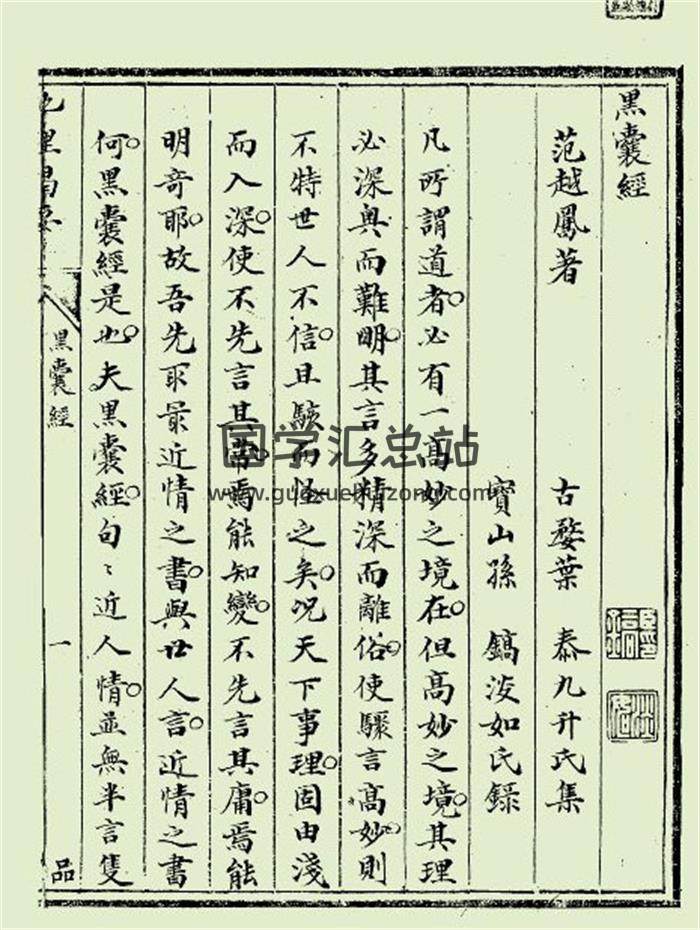 黑囊經
范越鳳著 古婺葉 泰九升氏集
寶山孫 鎬浚如氏錄
凡所謂道者必有一高妙之境在但高妙之境其理
必深奧而難明其言多精深而離俗使驟言高妙則
不特世人不信且駭而怪之矣况天下事理固由淺
而入深使不先言其常焉能知變不先言其庸焉能
明奇耶故吾先取最近情之書與世人言近情之書
何黑囊經是也夫黑囊經句〻近人情並無半言隻
黑囊經 一 品
国学汇总站
www.guoxuehuizong.com